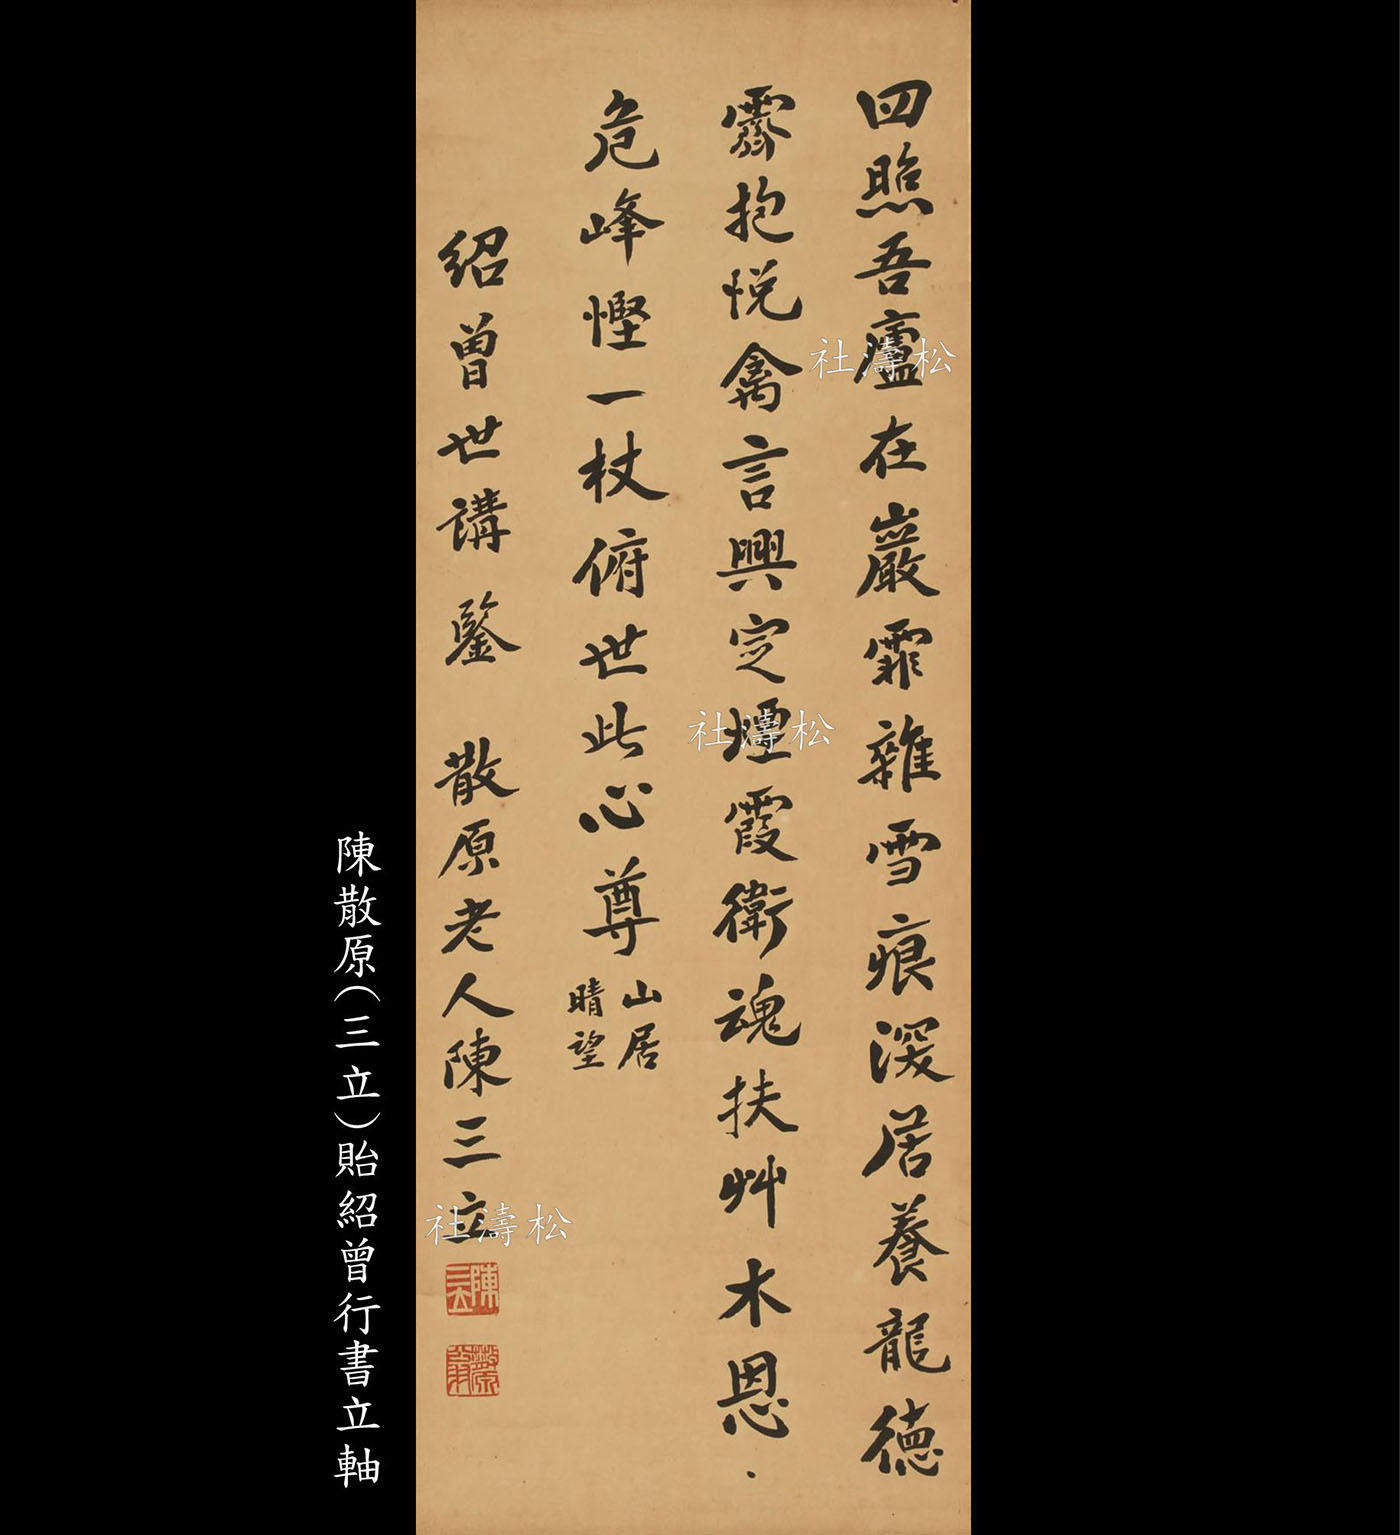 四照吾廬在巖霏雜雪痕深居養龍德
霽抱悅禽言興定煙霞衛魂扶艸木恩
危峰慳一杖俯世此心尊
山居
晴望
紹曾世講鑒 散原老人陳三立
陳三立
散原
陳散原(三立)貽紹曾行書立軸
松濤社
松濤社
松濤社